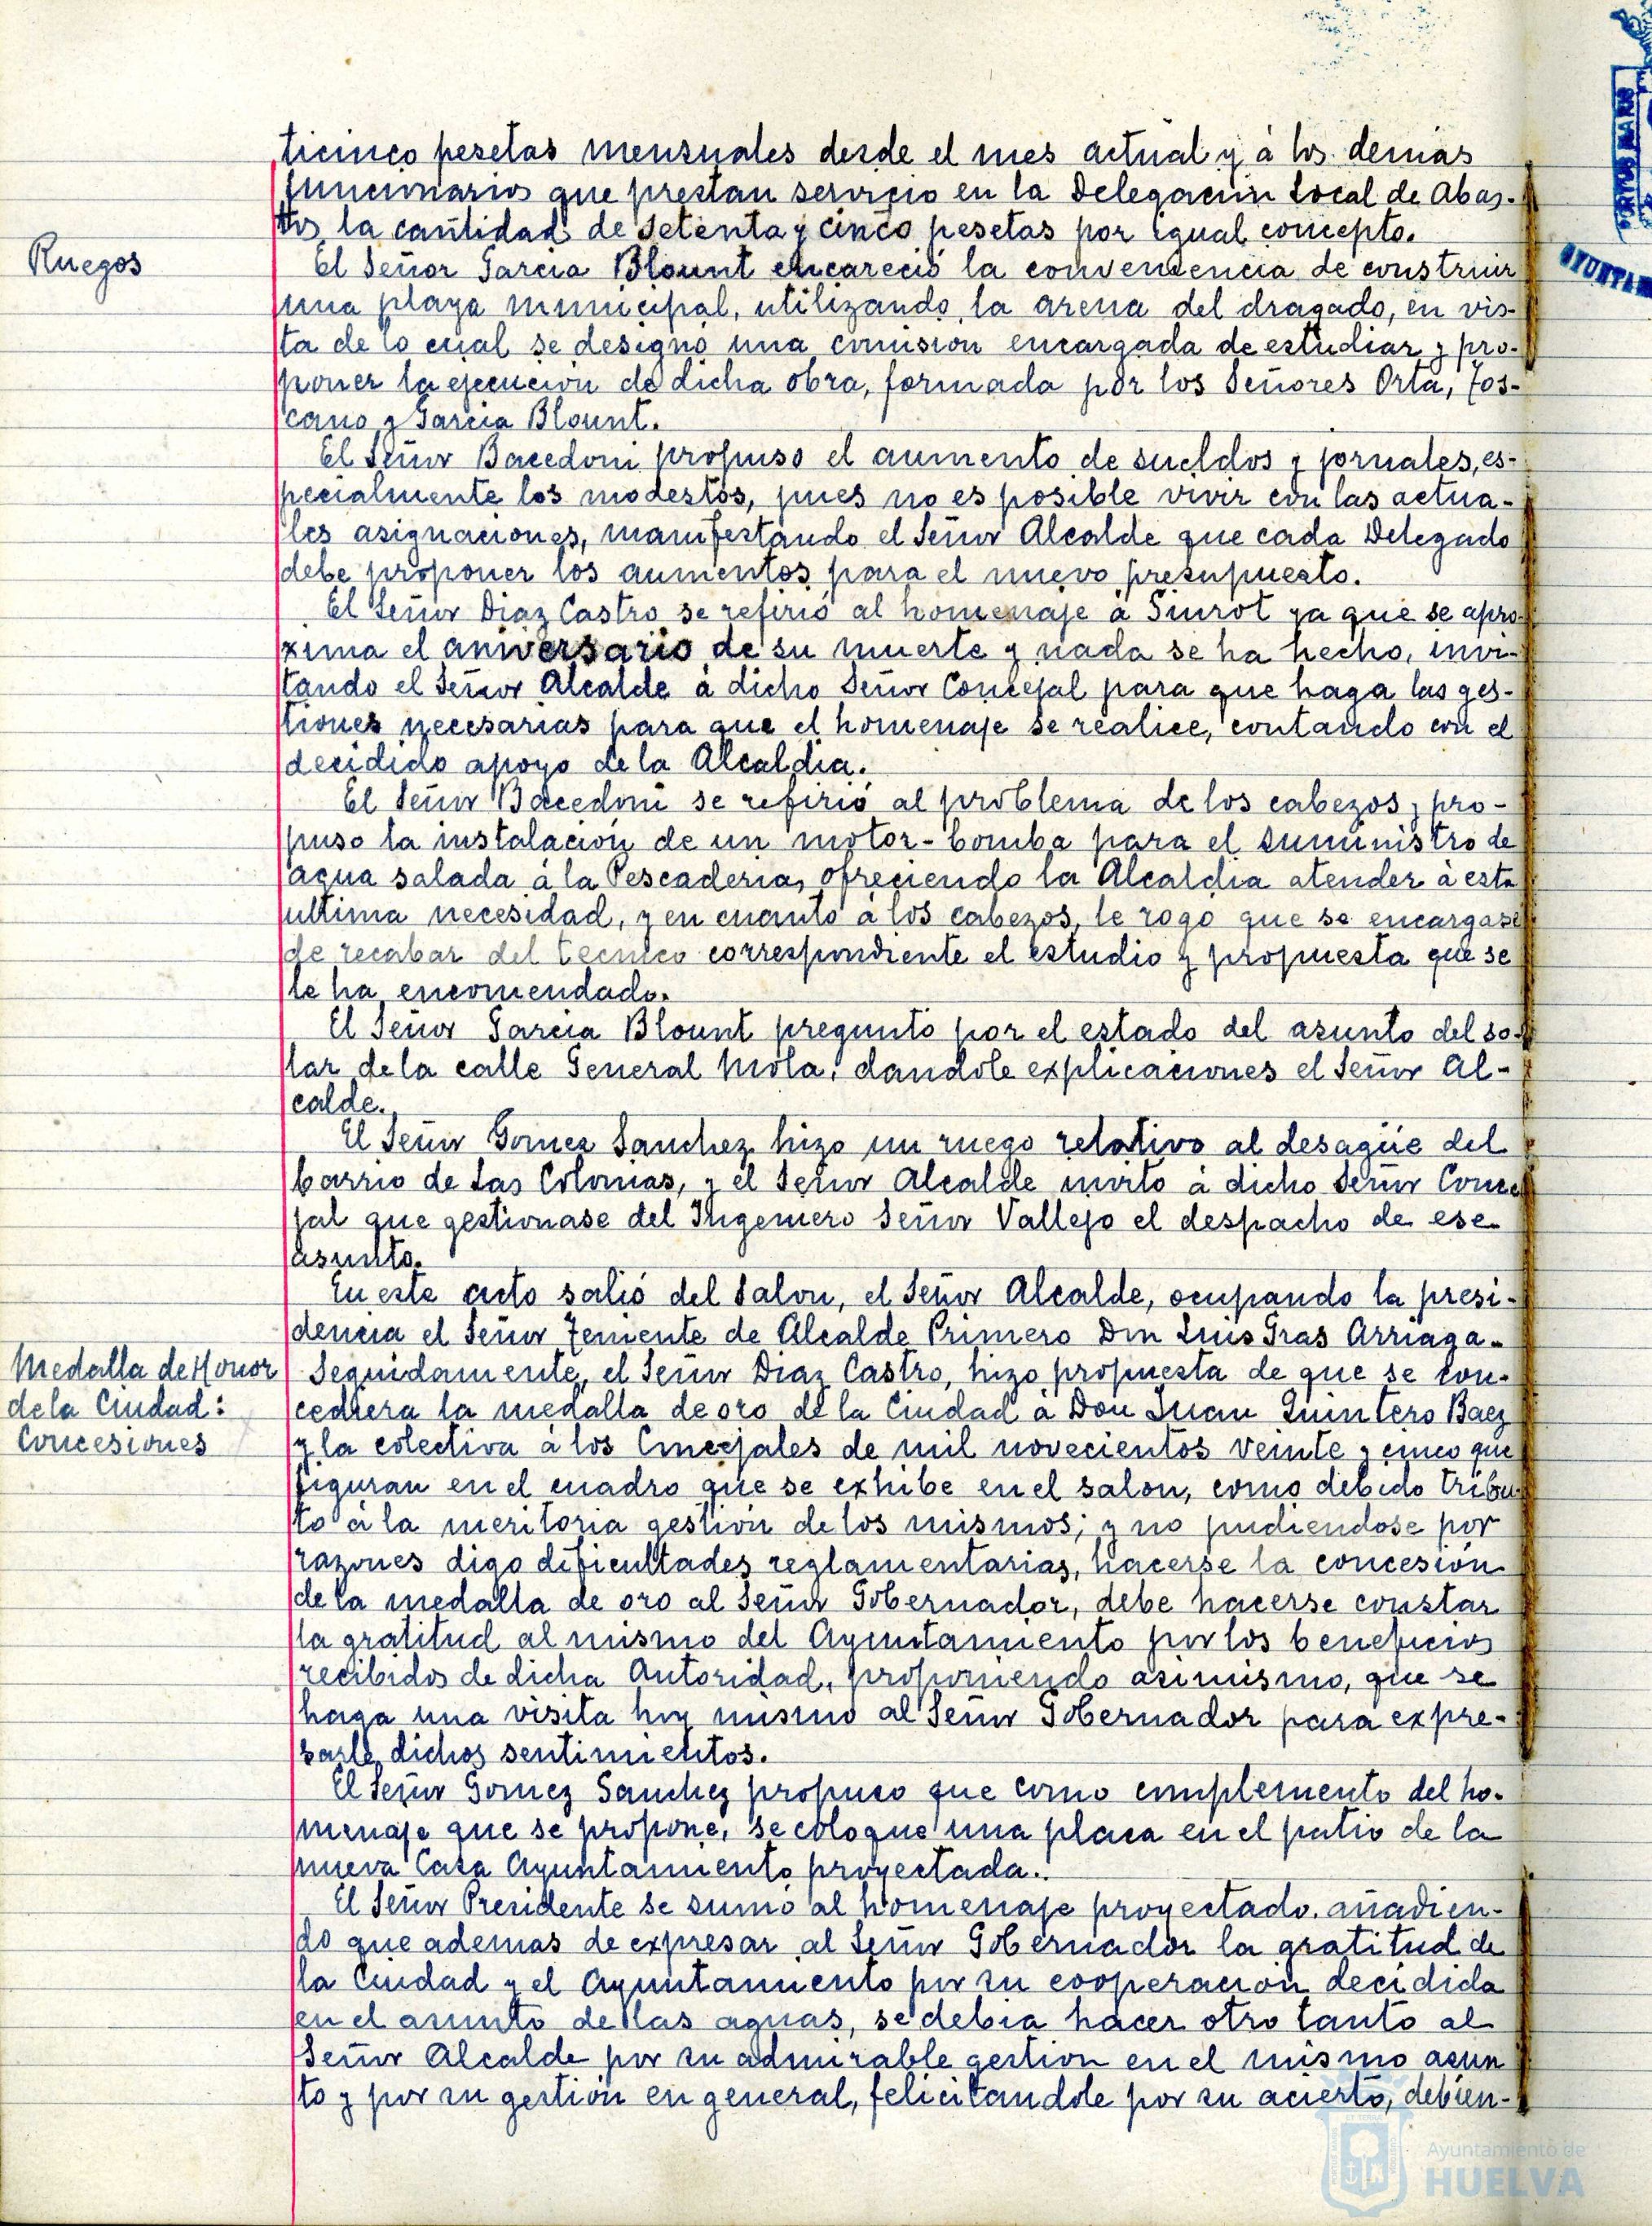 ticinco pesetas mensuales desde el mes actual y á los demás
funcionarios que prestan servicio en la Delegación Local de Abas-
tos la cantidad de setenta y cinco pesetas por igual concepto.
Ruegos
El Señor Garcia Blount encareció la conveniencia de construir
una playa municipal, utilizando la arena del dragado, en vis-
ta de lo cual se designó una comision encargada de estudiar y pro-
poner la ejecución de dicha obra, formada por los Señores Orta, Tos-
cano y Garcia Blount.
El Señor Bacedoni propuso el aumento de sueldos y jornales, es-
pecialmente los modestos, pues no es posible vivir con las actua-
les asignaciones, manifestando el Señor Alcalde que cada Delegado
debe proponer los aumentos para el nuevo presupuesto.
El Señor Diaz Castro se refirió al homenaje á Siurot ya que se apro-
xima el aniversario de su muerte y nada se ha hecho, invi-
tando el Señor Alcalde á dicho Señor Concejal para que haga las ges-
tiones necesarias para que el homenaje se realice, contando con el
decidido apoyo de la Alcaldia.
El Señor Bacedoni se refirió al problema de los cabezos y pro-
puso la instalación de un motor-bomba para el suministro de
agua salada á la Pescaderia, ofreciendo la Alcaldia atender á esta
ultima necesidad, y en cuanto á los cabezos, le rogó que se encargase
de recabar del tecnico correspondiente el estudio y propuesta que se
le ha encomendado.
El Señor Garcia Blount preguntó por el estado del asunto del so-
lar de la calle General Mola, dandole explicaciones el Señor Al-
calde.
El Señor Gomez Sanchez hizo un ruego relativo al desagüe del
barrio de Las Colonias, y el Señor Alcalde invitó á dicho Señor Conce
jal que gestionase del Ingeniero Señor Vallejo el despacho de ese
asunto.
En este acto salió del Salon, el Señor Alcalde, ocupando la presi-
dencia el Señor Teniente de Alcalde Primero Don Luis Gras Arriaga.
Medalla de Honor
de la Ciudad:
Concesiones
Seguidamente, el Señor Diaz Castro, hizo propuesta de que se con-
cediera la medalla de oro de la Ciudad á Don Juan Quintero Baez
y la colectiva á los Concejales de mil novecientos veinte y cinco que
figuran en el cuadro que se exhibe en el salon, como debido tribu-
to á la meritoria gestión de los mismos; y no pudiendose por
razones digo dificultades reglamentarias, hacerse la concesión
de la medalla de oro al Señor Gobernador, debe hacerse constar
la gratitud al mismo del Ayuntamiento por los beneficios
recibidos de dicha Autoridad, proponiendo asimismo, que se
haga una visita hoy mismo al Señor Gobernador para expre-
sarle dichos sentimientos.
El Señor Gomez Sanchez propuso que como complemento del ho-
menaje que se propone, se coloque una placa en el patio de la
nueva Casa Ayuntamiento proyectada.
El Señor Presidente se sumó al homenaje proyectado, añadien-
do que ademas de expresar al Señor Gobernador la gratitud de
la Ciudad y el Ayuntamiento por su cooperación decidida
en el asunto de las aguas, se debia hacer otro tanto al
Señor Alcalde por su admirable gestion en el mismo asun
to y por su gestión en general, felicitandole por su acierto, debien-
Ayuntamiento de
HUELVA